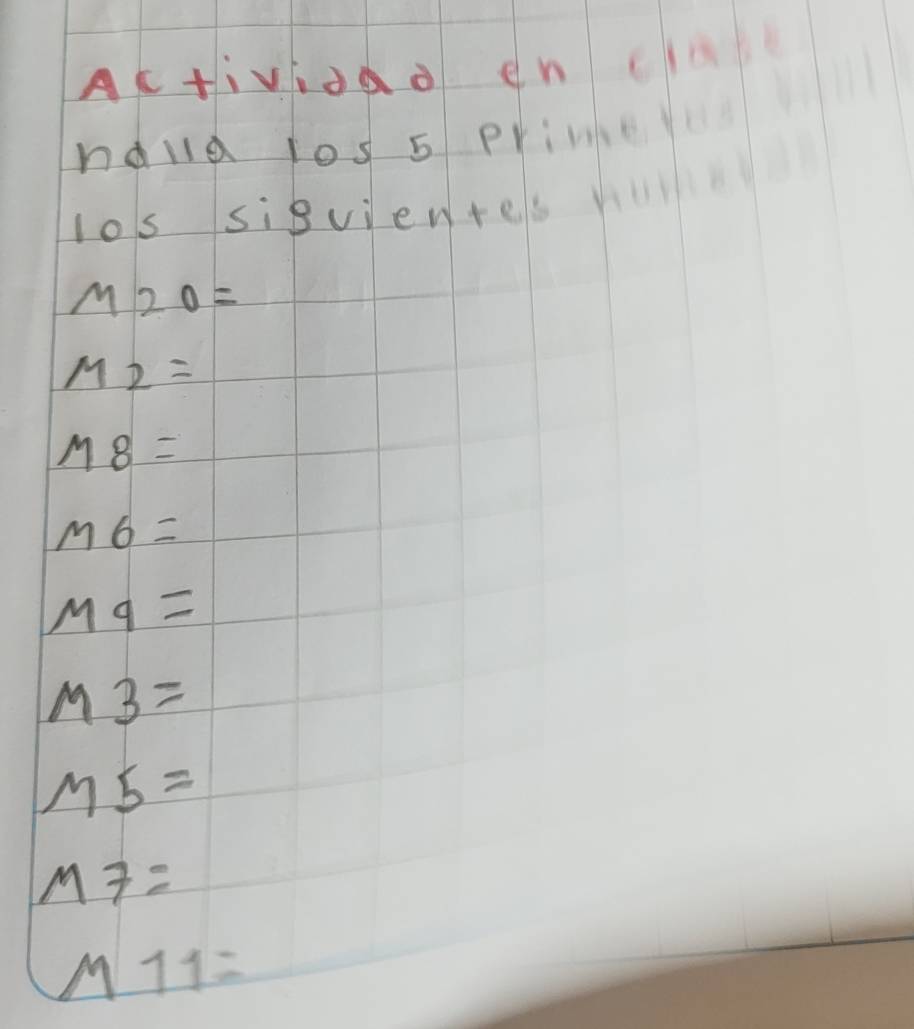 Actividad en clase
halla los 5 primeros
los siguientes numeros
M20=
M2=
M8=
M6=
M9=
M3=
M5=
M7=
M11=